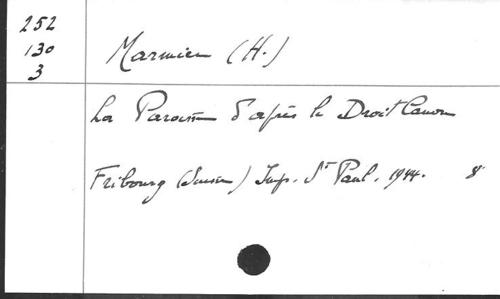 252
130
3
Marmier (H.)
La Paroisse d'après le Droit Canon
Fribourg (Suisse) Imp. St Paul. 1944. 8